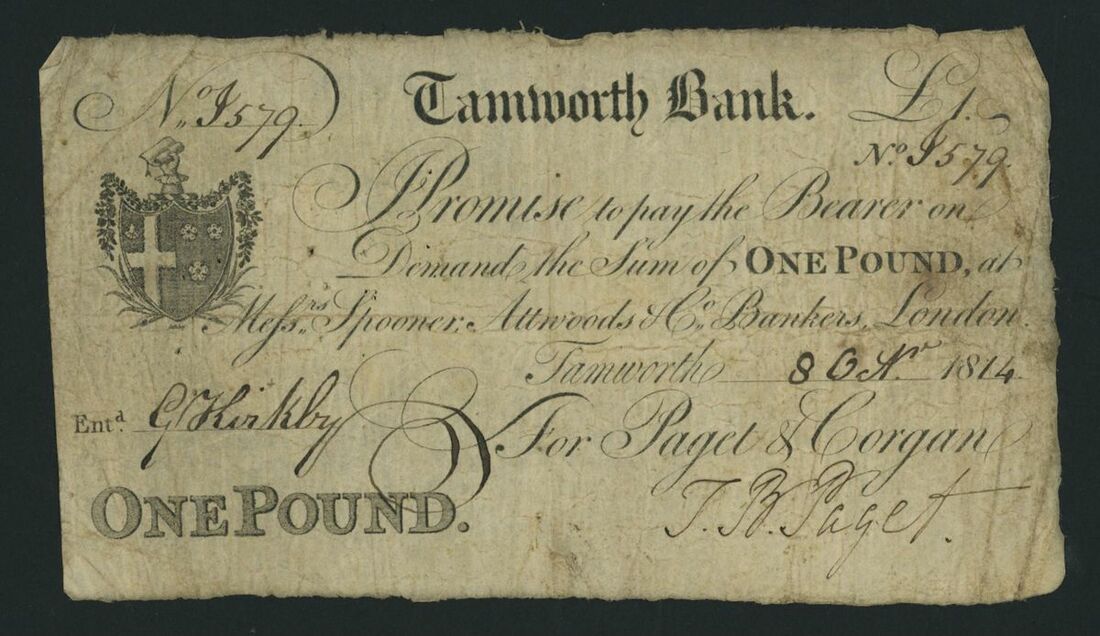 No. J579. Tamworth Bank. £1.
No. J579.
I Promise to pay the Bearer on
Demand the Sum of ONE POUND, at
Messrs. Spooner, Attwoods & Co. Bankers, London.
Tamworth 8 Octr 1814
Entd. G Kirkby For Paget & Corgan
ONE POUND. T. B. Paget.